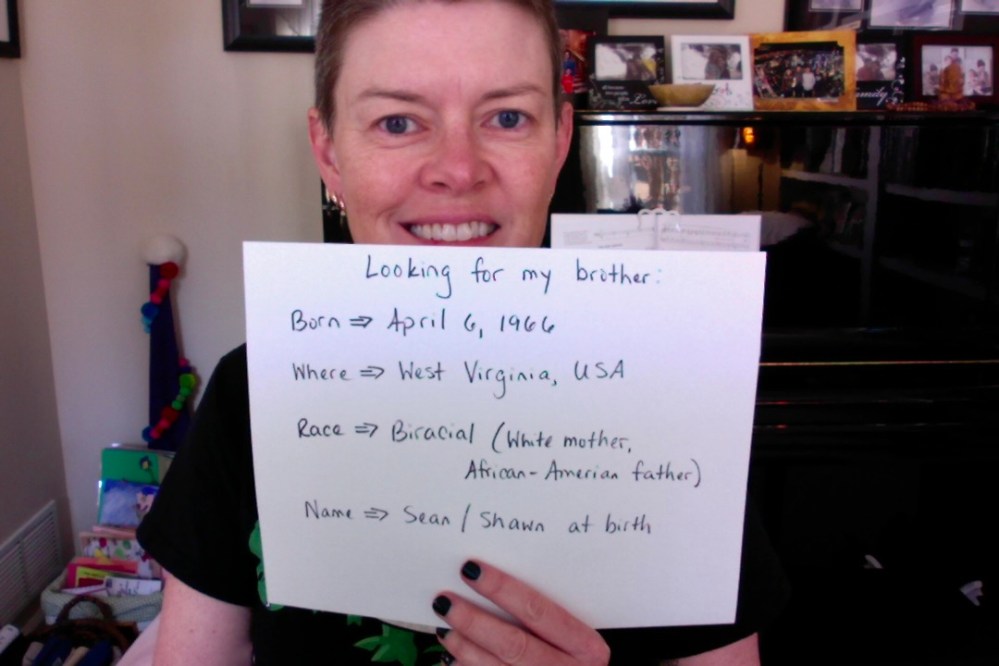 Looking for my brother:
Born ⇒ April 6, 1966
Where ⇒ West Virginia, USA
Race ⇒ Biracial (White mother,
African-Amerian father)
Name ⇒ Sean / Shawn at birth